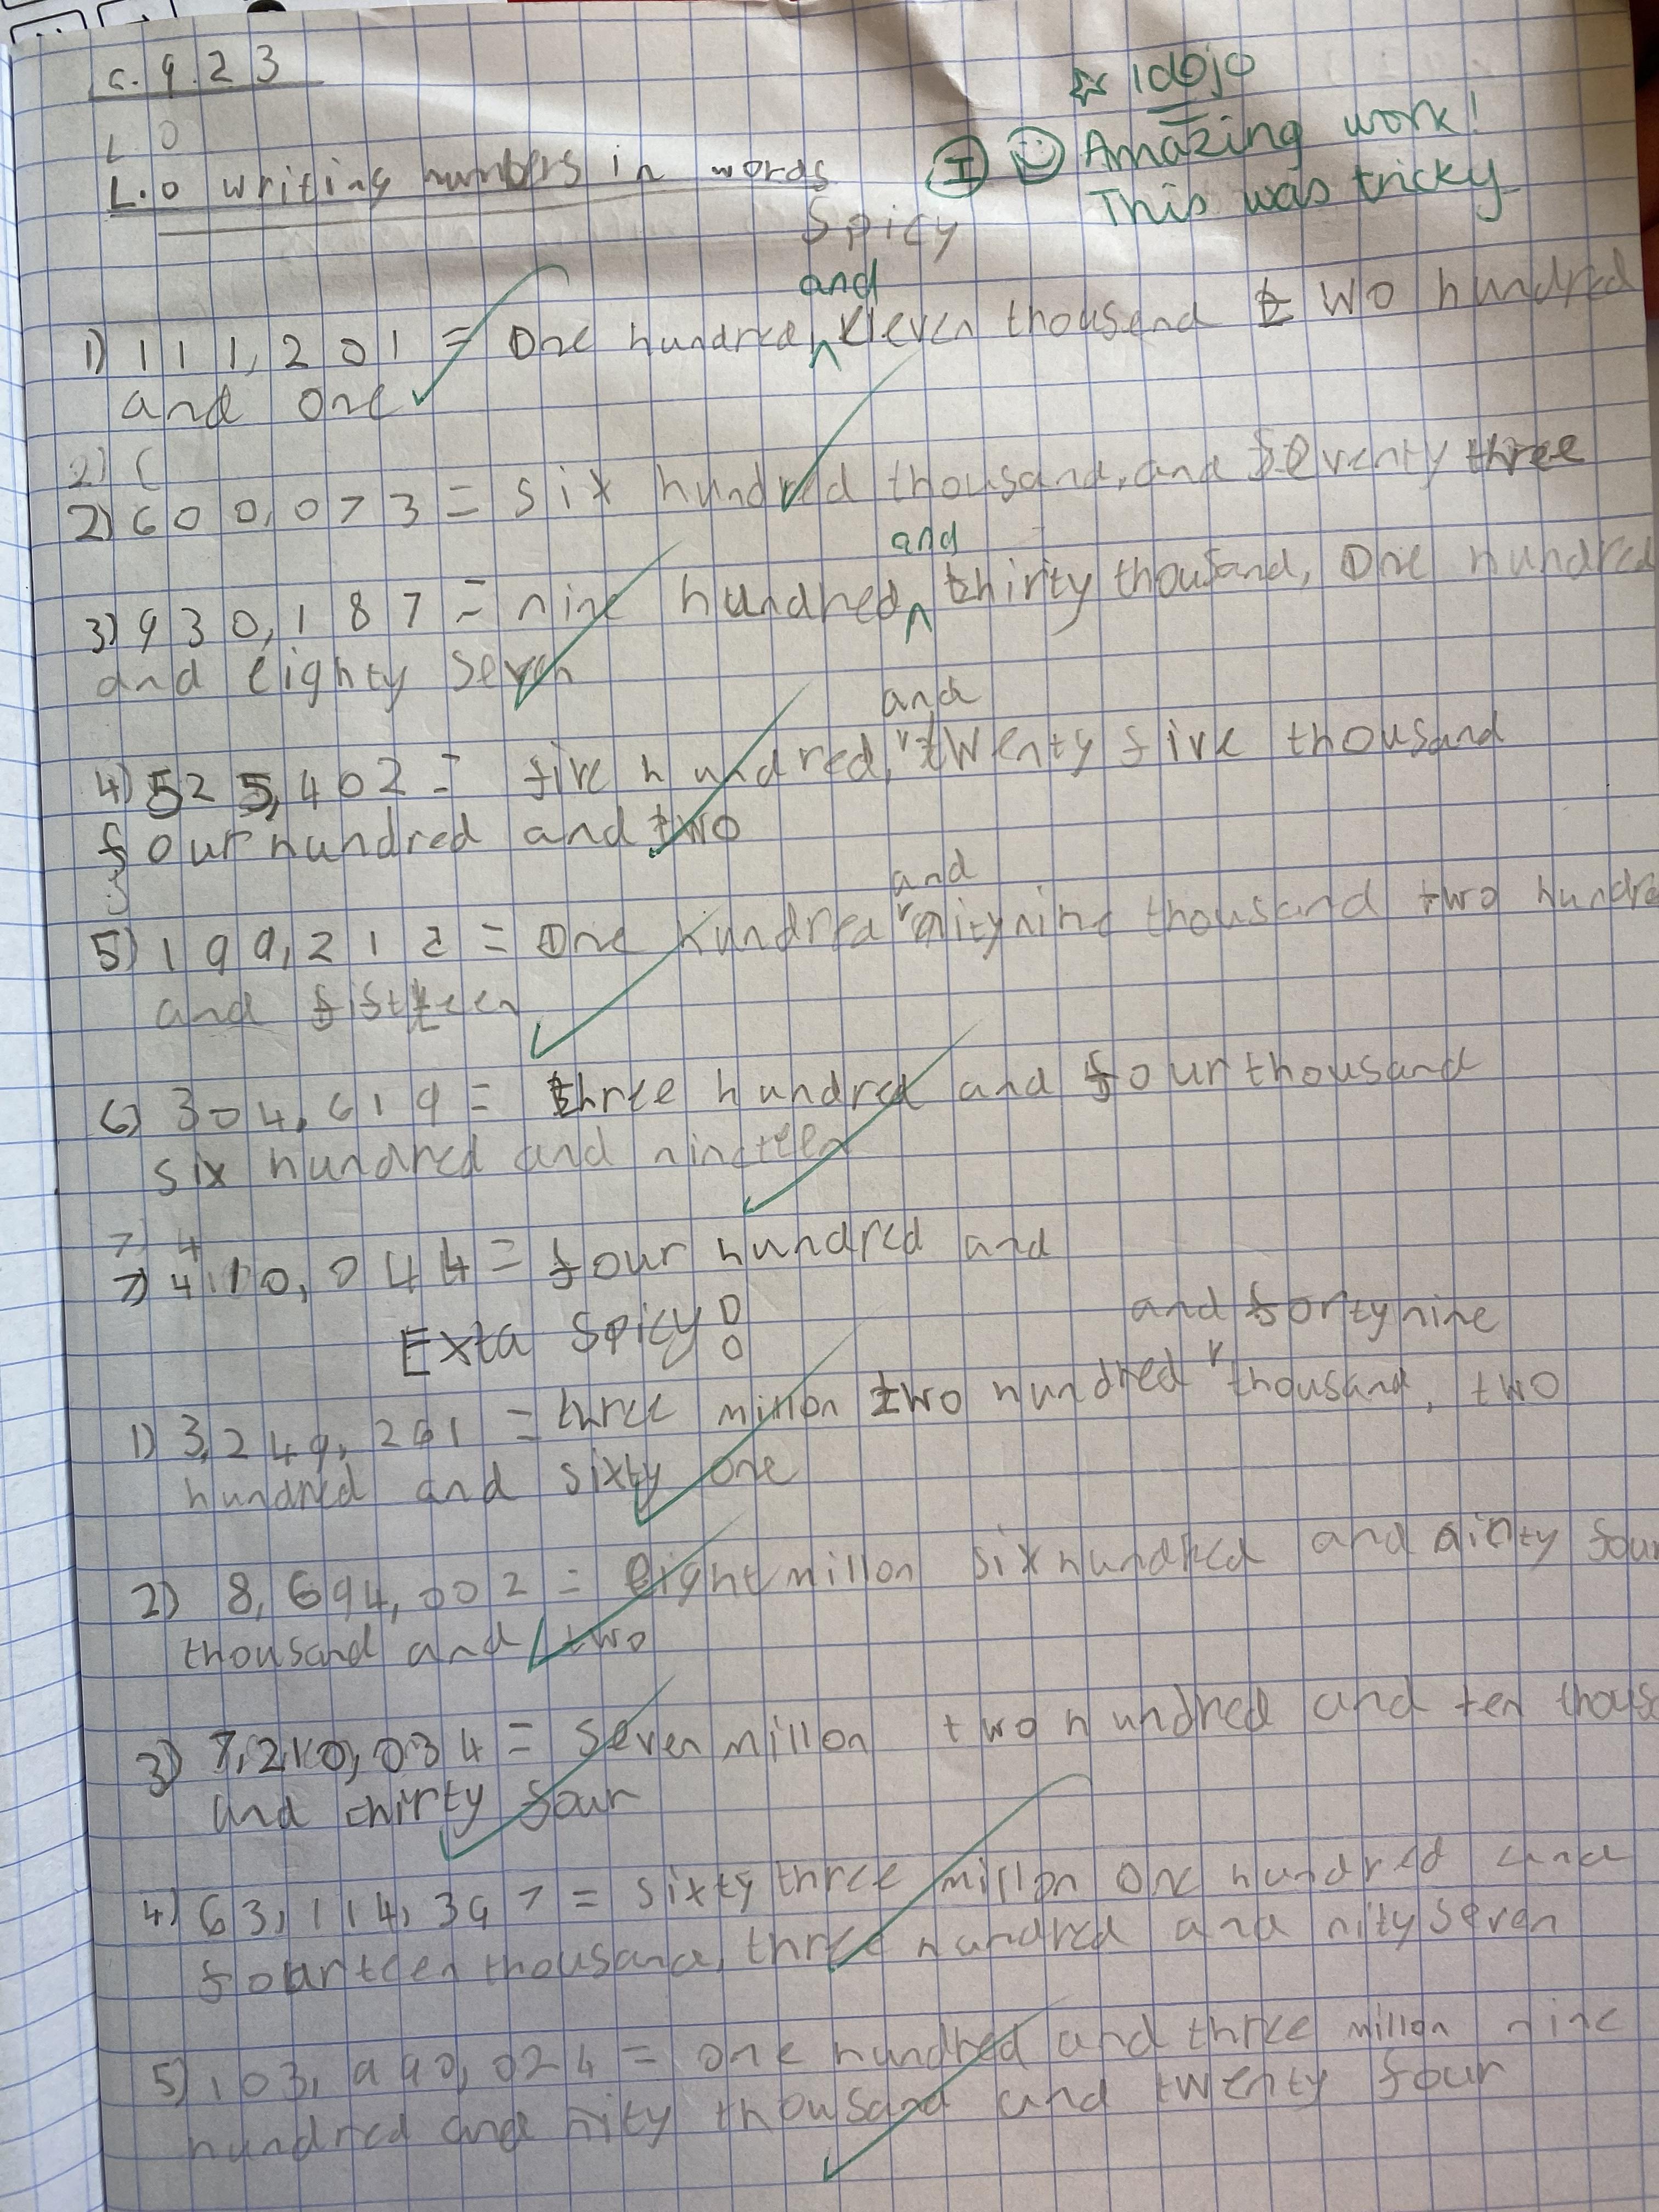 6.9.23
L O
L.O writing numbers in words
☆ 1dojo
I Amazing work!
This was tricky
Spicy
and
1) 111,201 = One hundred eleven thousend two hundred
and one
2) (
2) 600,073 = six hundred thousand, and seventy three
and
3) 930,187 = nine hundred thirty thousand, One hundred
and eighty seven
and
4) 525,402 = five hundred, twenty five thousand
four hundred and two
and
5) 199,212 = One hundred nitynine thousand two hundre
and
6) 304,619 = three hundred and four thousand
six hundred and nineteen
7) 4
7) 410,044 = four hundred and
Exta Spicy!
and fortynine
1) 3,249,261 = three millon two hundred thousand, two
hundred and sixty one
2) 8,694,002 = eight millon six hundred and ninty four
thousand and two
3) 7,210,034 = seven millon two hundred and ten thous
and thirty four
4) 63,114,397 = sixty three millon one hundred and
fourteen thousand, three hundred and nity seven
5) 103,990,024 = one hundred and three millon nine
hundred and nity thousand and twenty four